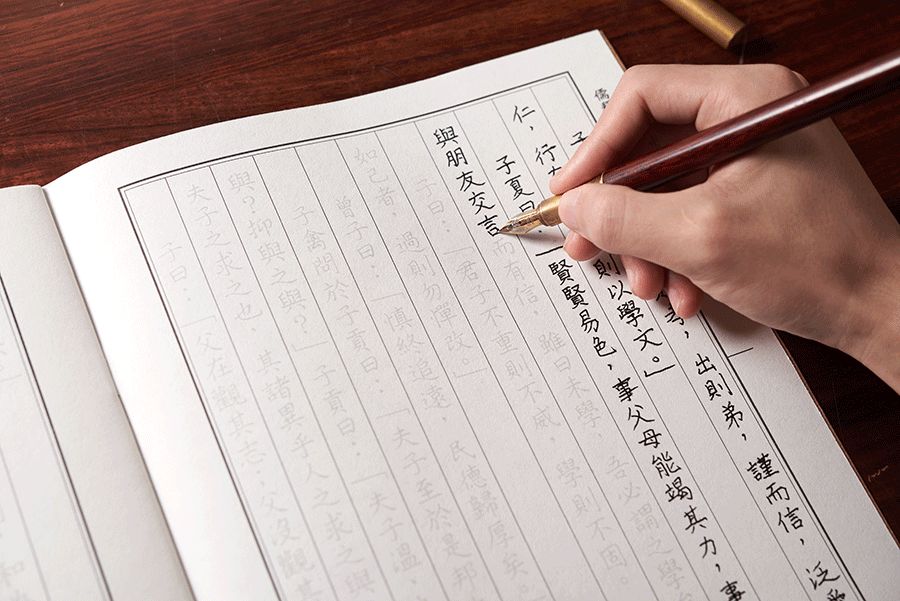 儒
子 孝，出則弟，謹而信，泛
仁，行 則以學文。」
子夏曰：「賢賢易色，事父母能竭其力，事
與朋友交言而有信。雖曰未學，吾必謂之學
子曰：「君子不重則不威，學則不固。
如己者，過則勿憚改。」
曾子曰：「慎終追遠，民德歸厚矣。
子禽問於子貢曰：「夫子至於是邦
與？抑與之與？」子貢曰：「夫子溫、
夫子之求之也，其諸異乎人之求之與
子曰：「父在觀其志；父沒觀其
和